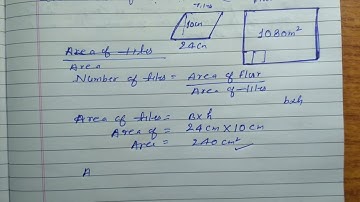 tiles
10cm
24cm
1080m²
Area of tiles
Area
Number of tiles = Area of flur
Area of tiles
bxh
Area of tiles = Bxh
Area of = 24cm x 10cm
Area = 240cm²
A